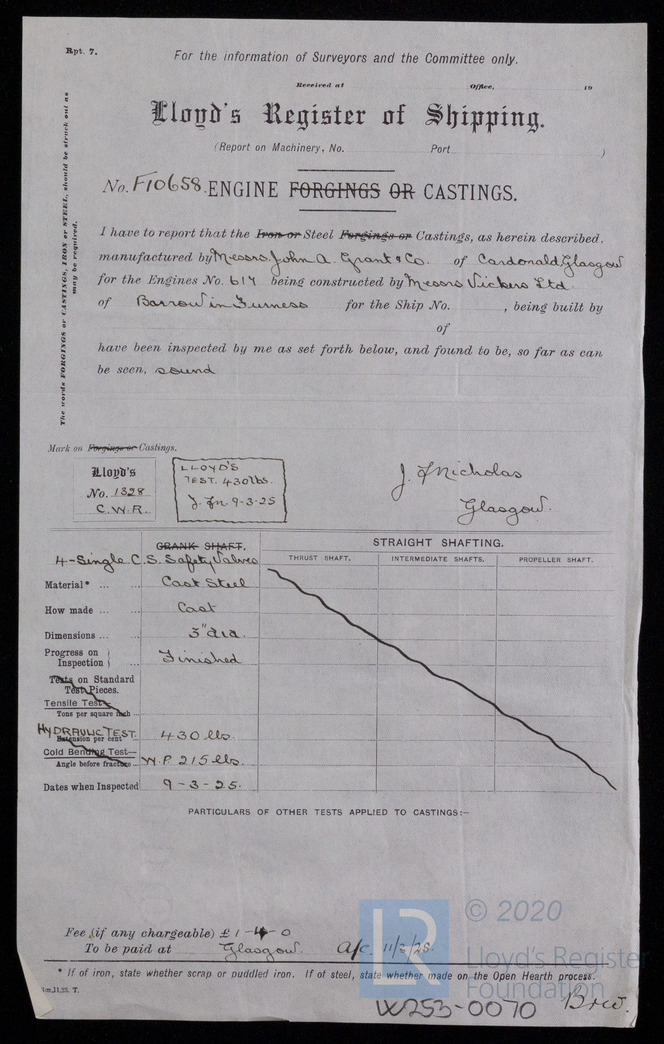 Rpt. 7.
For the information of Surveyors and the Committee only.
Received at Office, 19
Lloyd's Register of Shipping.
(Report on Machinery, No. Port )
No. F10658. ENGINE FORGINGS OR CASTINGS.
The words FORGINGS or CASTINGS, IRON or STEEL, should be struck out as may be required.
I have to report that the Iron or Steel Forgings or Castings, as herein described,
manufactured by Messrs. John A. Grant & Co. of Cardonald Glasgow
for the Engines No. 617 being constructed by Messrs Vickers Ltd.
of Barrow in Furness for the Ship No. , being built by
of
have been inspected by me as set forth below, and found to be, so far as can
be seen, sound
Mark on Forgings or Castings.
Lloyd's
No. 1328
C.W.R.
LLOYD'S
TEST. 430 lbs.
J. Fn. 9-3-25
J. F Nicholas
Glasgow.
CRANK SHAFT.
STRAIGHT SHAFTING.
4-Single C.S. Safety Valves
THRUST SHAFT. INTERMEDIATE SHAFTS. PROPELLER SHAFT.
Material* ... ... Cast Steel
How made ... ... Cast
Dimensions ... ... 3" dia.
Progress on Inspection } Finished
Tests on Standard
Test Pieces.
Tensile Test—
Tons per square inch
HYDRAULIC TEST. 430 lbs.
Extension per cent
Cold Bending Test—
Angle before fracture ... W.P. 215 lbs.
Dates when Inspected 9-3-25.
PARTICULARS OF OTHER TESTS APPLIED TO CASTINGS:—
Fee (if any chargeable) £ 1-4-0
To be paid at Glasgow. A/c. 11/3/25
* If of iron, state whether scrap or puddled iron. If of steel, state whether made on the Open Hearth process.
LR
© 2020
Lloyd's Register
Foundation
W253-0070